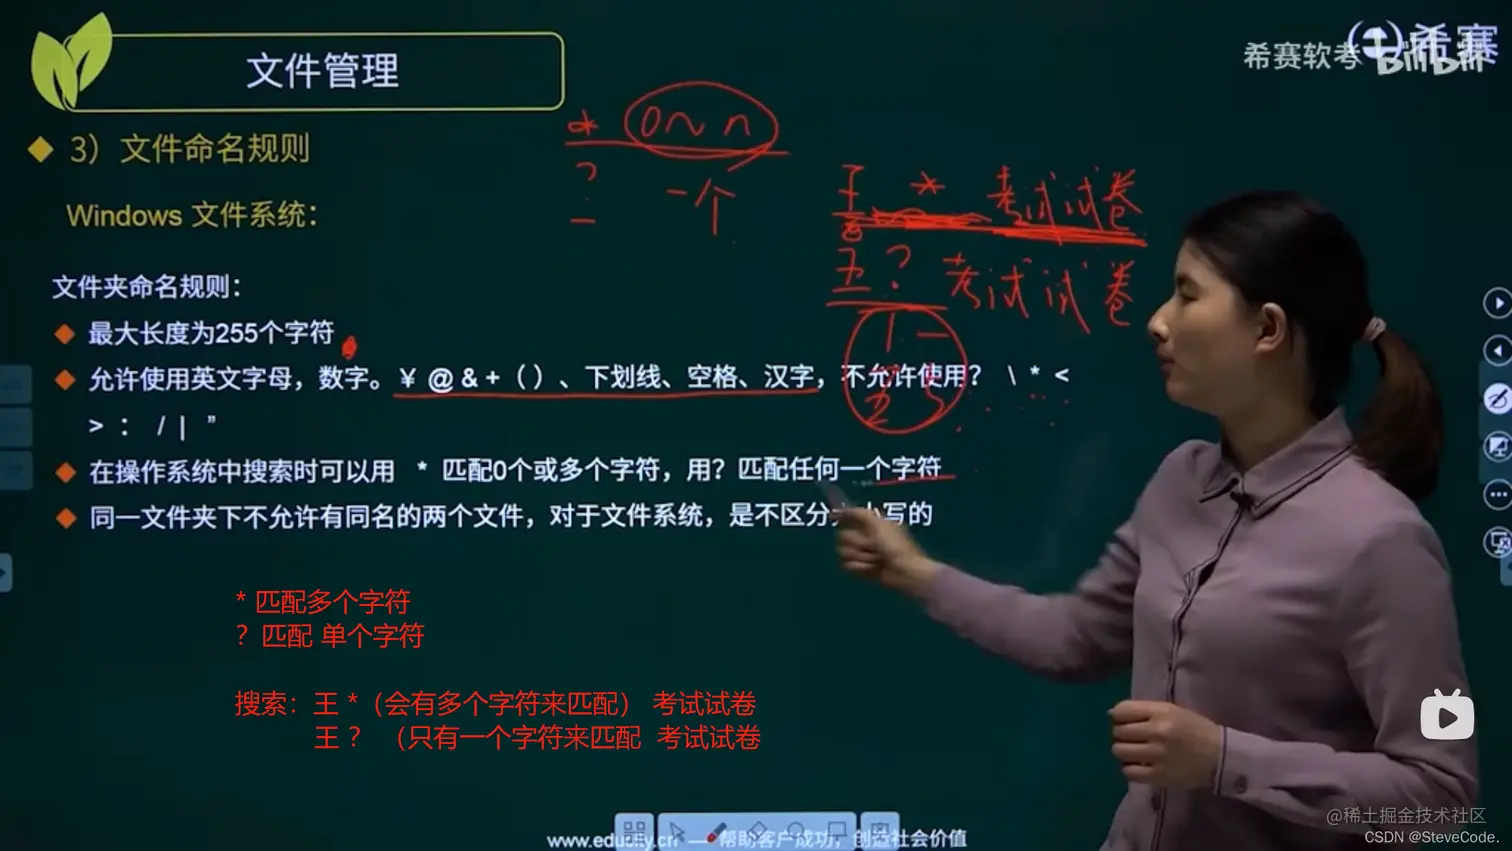 文件管理
希赛
希赛软考
bilibili
3）文件命名规则
* 0~n
? 一个
王 * 考试试卷
王 ? 考试试卷
Windows 文件系统：
文件夹命名规则：
最大长度为255个字符
允许使用英文字母，数字。￥ @ & + （ ）、下划线、空格、汉字，不允许使用？ \ * <
> ： / | ”
在操作系统中搜索时可以用 * 匹配0个或多个字符，用？匹配任何一个字符
同一文件夹下不允许有同名的两个文件，对于文件系统，是不区分大小写的
* 匹配多个字符
？匹配 单个字符
搜索：王 *（会有多个字符来匹配） 考试试卷
王 ？ （只有一个字符来匹配 考试试卷
www.educity.cn — 帮助客户成功，创造社会价值
@稀土掘金技术社区
CSDN @SteveCode.